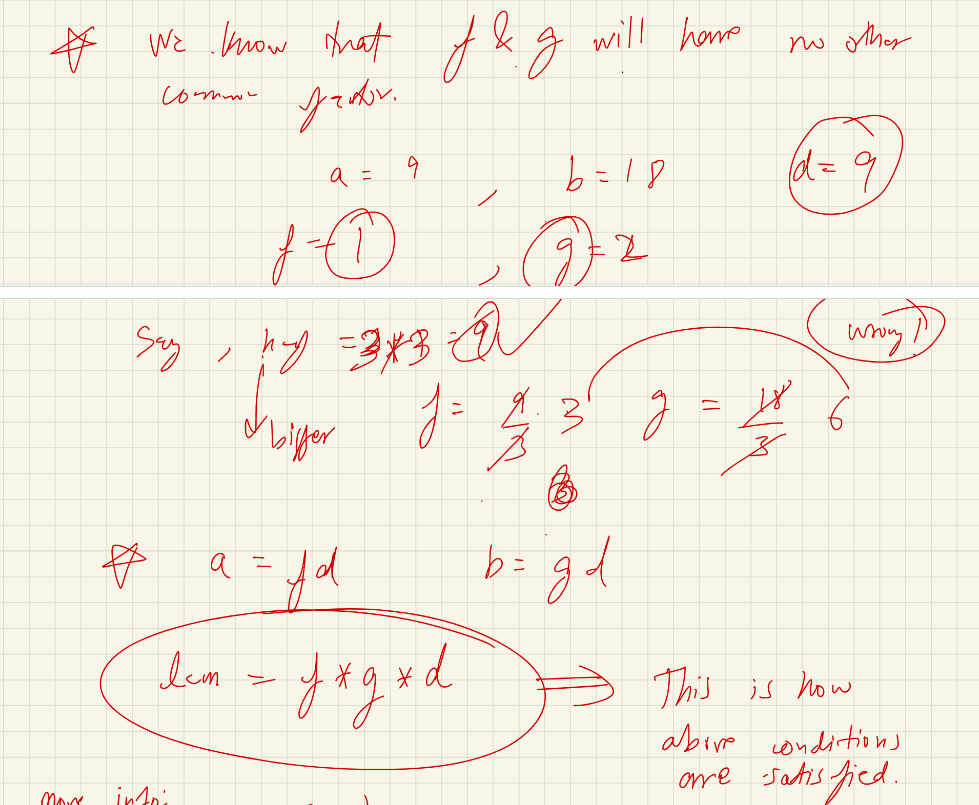 ☆ We know that f & g will have no other
common factor.
a = 9 , b = 18 d = 9
f = 1 , g = 2
Say , = 3*3 = 9 wrong!
bigger f = 9/3 3 g = 18/3 6
☆ a = fd b = gd
lcm = f * g * d ⇒ This is how
above conditions
are satisfied.
more info: